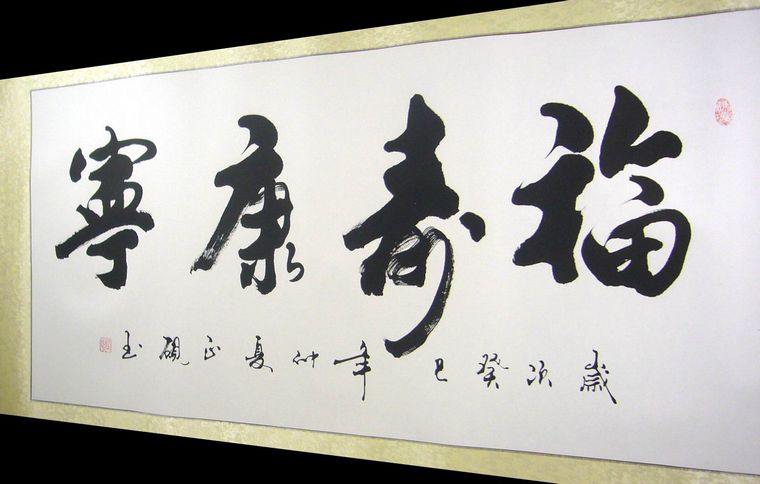 福壽康寧
歲次癸巳年仲夏正硯書